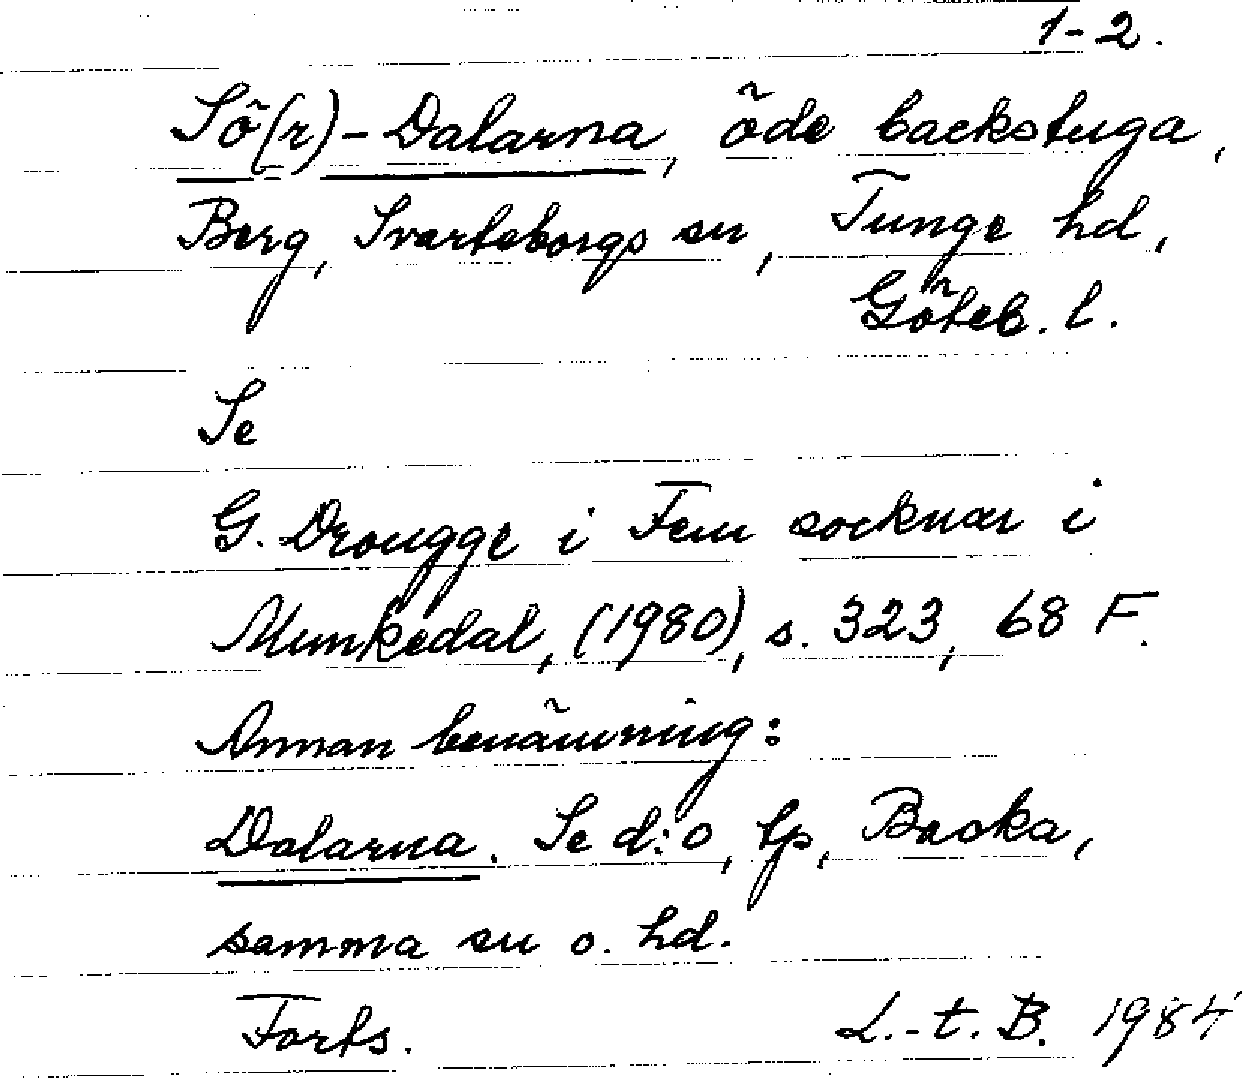 1-2.
Sö(r)-Dalarna, öde backstuga,
Berg, Svarteborgs sn, Tunge hd,
Göteb. l.
Se
G. Drougge i Fem socknar i
Munkedal, (1980), s. 323, 68 F.
Annan benämning:
Dalarna. Se d:o, tp, Backa,
samma sn o. hd.
Forts. L.-t. B. 1984